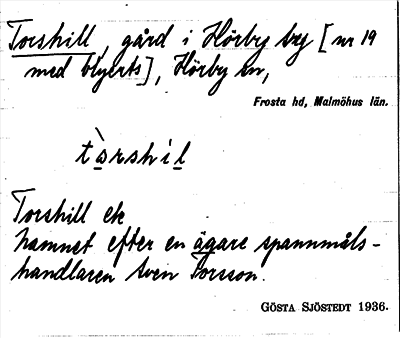 Torshill, gård i Hörby by [nr 19
med blyerts], Hörby sn,
Frosta hd, Malmöhus län.
tàrshìl
Torshill ek
hamnet efter en ägare spannmåls-
handlaren Sven Torsson.
GÖSTA SJÖSTEDT 1936.